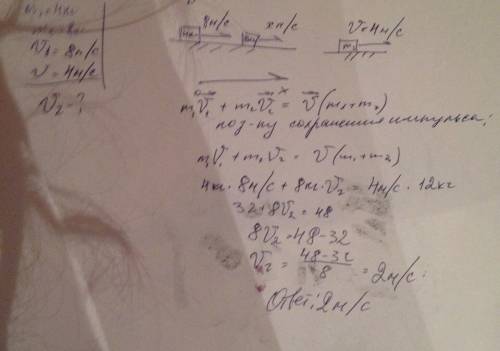 m₁=4кг
V₁=8м/с
V=4м/с
V₂-?
8м/с x м/с V=4м/с
m₁V₁ + m₂V₂ = V(m₁+m₂)
по з-ну сохранения импульса:
m₁V₁+m₂V₂ = V(m₁+m₂)
4кг·8м/с+8кг·V₂=4м/с·12кг
32+8V₂=48
8V₂=48-32
V₂=48-32/8=2м/с.
Ответ: 2м/с